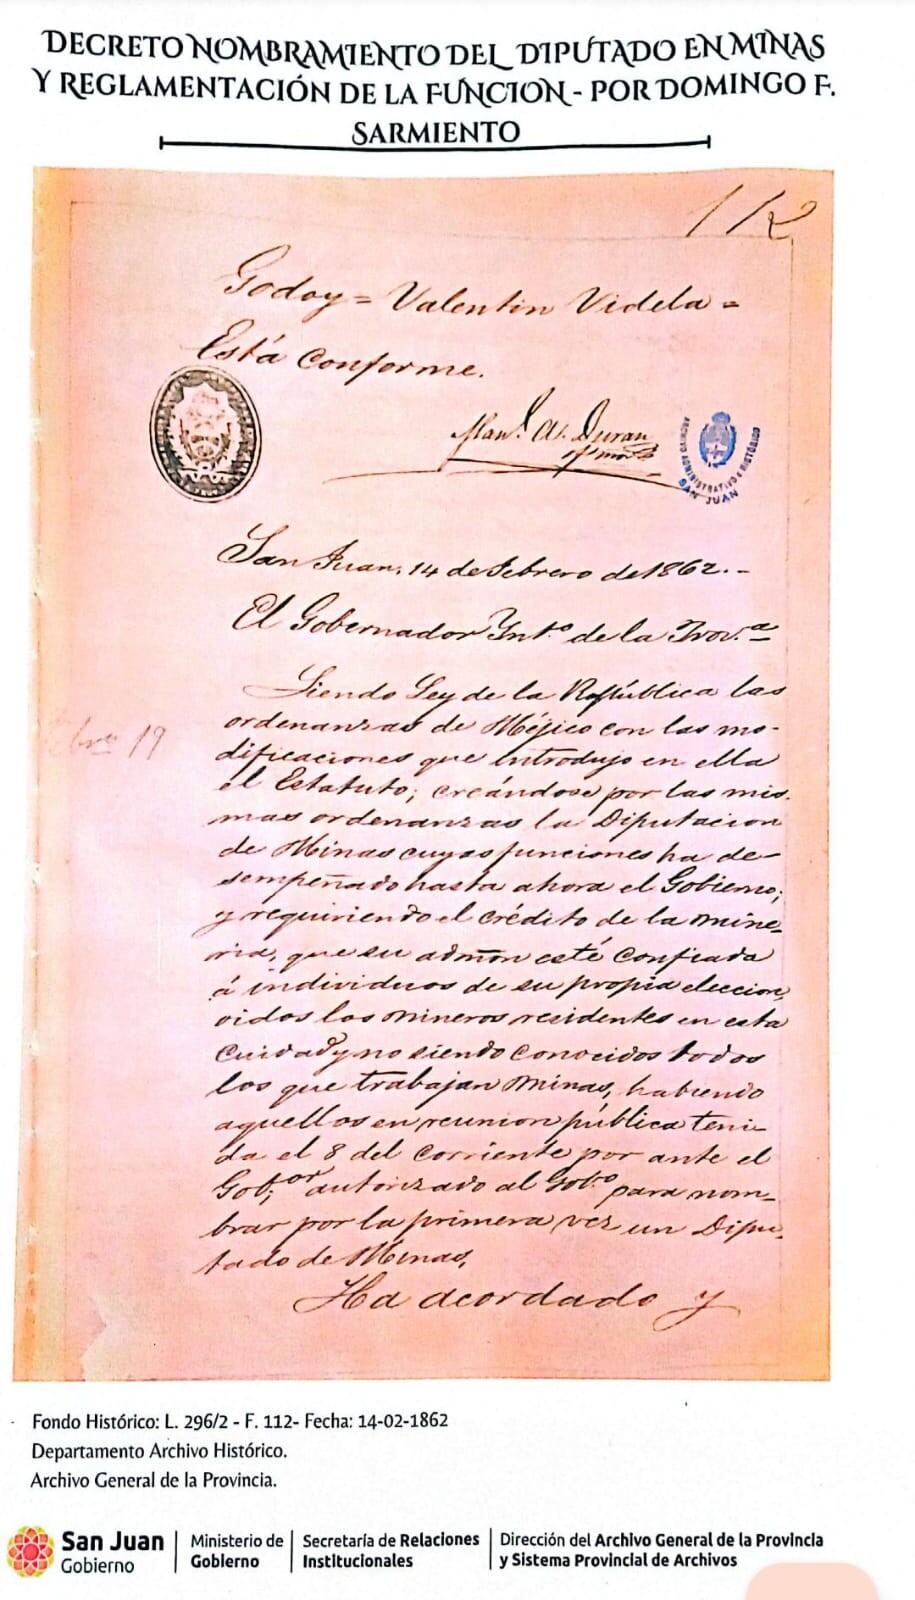 DECRETO NOMBRAMIENTO DEL DIPUTADO EN MINAS
Y REGLAMENTACIÓN DE LA FUNCION - POR DOMINGO F.
SARMIENTO
112
Godoy = Valentin Videla =
Está conforme.
Man.l A. Duran
ARCHIVO ADMINISTRATIVO E HISTÓRICO
SAN JUAN
San Juan, 14 de Febrero de 1862. -
El Gobernador Int.o de la Prov.a
Siendo Ley de la República las
ordenanzas de Méjico con las mo-
dificaciones que introdujo en ella
el Estatuto; creándose por las mis-
mas ordenanzas la Diputacion
de Minas cuyas funciones ha de-
sempeñado hasta ahora el Gobierno;
y requiriendo el crédito de la mine-
ria, que su admon esté confiada
á individuos de su propia eleccion,
oidos los mineros residentes en esta
Cuidad y no siendo conocidos todos
los que trabajan minas, habiendo
aquellos en reunion pública teni-
da el 8 del corriente por ante el
Gob.or autorizado al Gob.o para nom-
brar por la primera vez un Dipu-
tado de Minas,
Ha acordado y
19
Fondo Histórico: L. 296/2 - F. 112- Fecha: 14-02-1862
Departamento Archivo Histórico.
Archivo General de la Provincia.
San Juan
Gobierno
Ministerio de
Gobierno
Secretaría de Relaciones
Institucionales
Dirección del Archivo General de la Provincia
y Sistema Provincial de Archivos